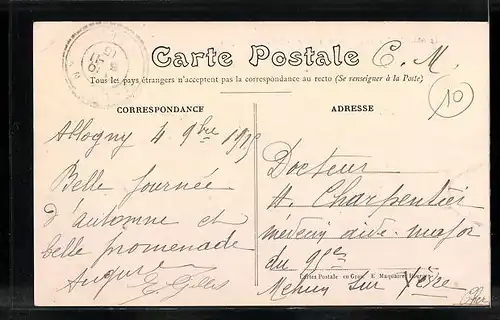 Carte Postale
C. M.
Tous les pays étrangers n'acceptent pas la correspondance au recto (Se renseigner à la Poste)
10
CORRESPONDANCE
ADRESSE
Allogny 4 9bre 1915
Belle journée
d'automne et
belle promenade
Docteur
H. Charpentier
médecin aide-major
du 95e
Cartes Postale en Gros E. Maquaire
Mehun sur Yèvre
Cher